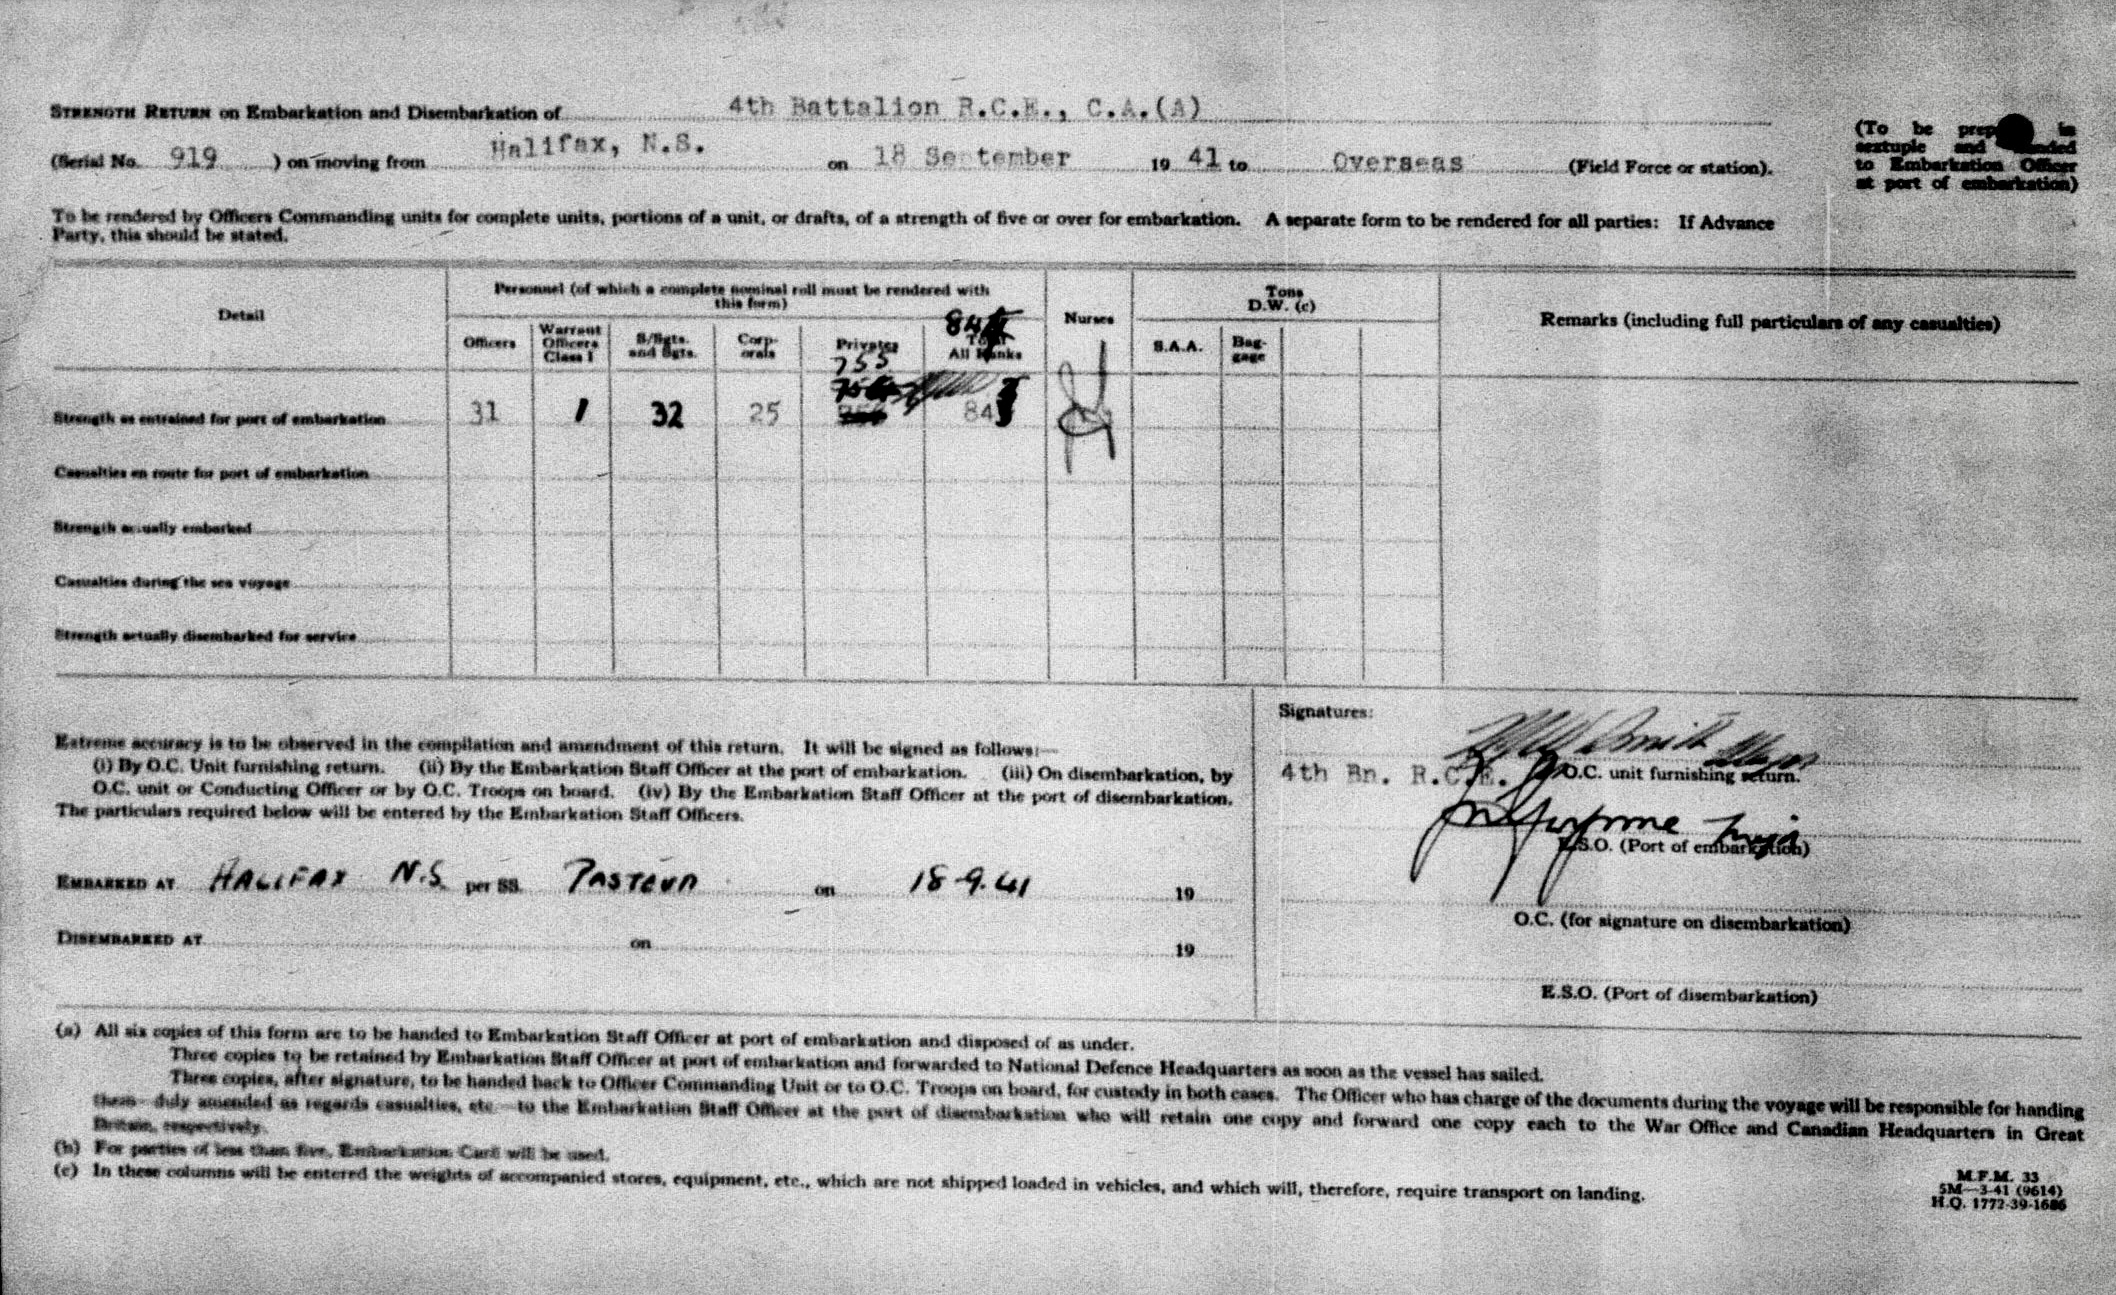 STRENGTH RETURN on Embarkation and Disembarkation of 4th Battalion R.C.E., C.A.(A)
(Serial No. 919 ) on moving from Halifax, N.S. on 18 September 19 41 to Overseas (Field Force or station).
(To be prep in
sextuple and handed
to Embarkation Officer
at port of embarkation)
To be rendered by Officers Commanding units for complete units, portions of a unit, or drafts, of a strength of five or over for embarkation. A separate form to be rendered for all parties: If Advance
Party, this should be stated.
Detail
Personnel (of which a complete nominal roll must be rendered with
this form)
Officers
Warrant
Officers
Class I
S/Sgts.
and Sgts.
Corp-
orals
Privates
Total
All Ranks
Nurses
Tons
D.W. (c)
S.A.A.
Bag-
gage
Remarks (including full particulars of any casualties)
755
Strength as entrained for port of embarkation 31 1 32 25
Casualties en route for port of embarkation
Strength actually embarked
Casualties during the sea voyage
Strength actually disembarked for service
Extreme accuracy is to be observed in the compilation and amendment of this return. It will be signed as follows:—
(i) By O.C. Unit furnishing return. (ii) By the Embarkation Staff Officer at the port of embarkation. (iii) On disembarkation, by
O.C. unit or Conducting Officer or by O.C. Troops on board. (iv) By the Embarkation Staff Officer at the port of disembarkation.
The particulars required below will be entered by the Embarkation Staff Officers.
EMBARKED AT HALIFAX N.S. per SS. PASTEUR on 18-9-41 19
DISEMBARKED AT on 19
Signatures:
Smith Major
4th Bn. R.C.E. O.C. unit furnishing return.
E.S.O. (Port of embarkation)
O.C. (for signature on disembarkation)
E.S.O. (Port of disembarkation)
(a) All six copies of this form are to be handed to Embarkation Staff Officer at port of embarkation and disposed of as under.
Three copies to be retained by Embarkation Staff Officer at port of embarkation and forwarded to National Defence Headquarters as soon as the vessel has sailed.
Three copies, after signature, to be handed back to Officer Commanding Unit or to O.C. Troops on board, for custody in both cases. The Officer who has charge of the documents during the voyage will be responsible for handing
them—duly amended as regards casualties, etc.—to the Embarkation Staff Officer at the port of disembarkation who will retain one copy and forward one copy each to the War Office and Canadian Headquarters in Great
Britain, respectively.
(b) For parties of less than five, Embarkation Card will be used.
(c) In these columns will be entered the weights of accompanied stores, equipment, etc., which are not shipped loaded in vehicles, and which will, therefore, require transport on landing.
M.F.M. 33
5M—3-41 (9614)
H.Q. 1772-39-1686